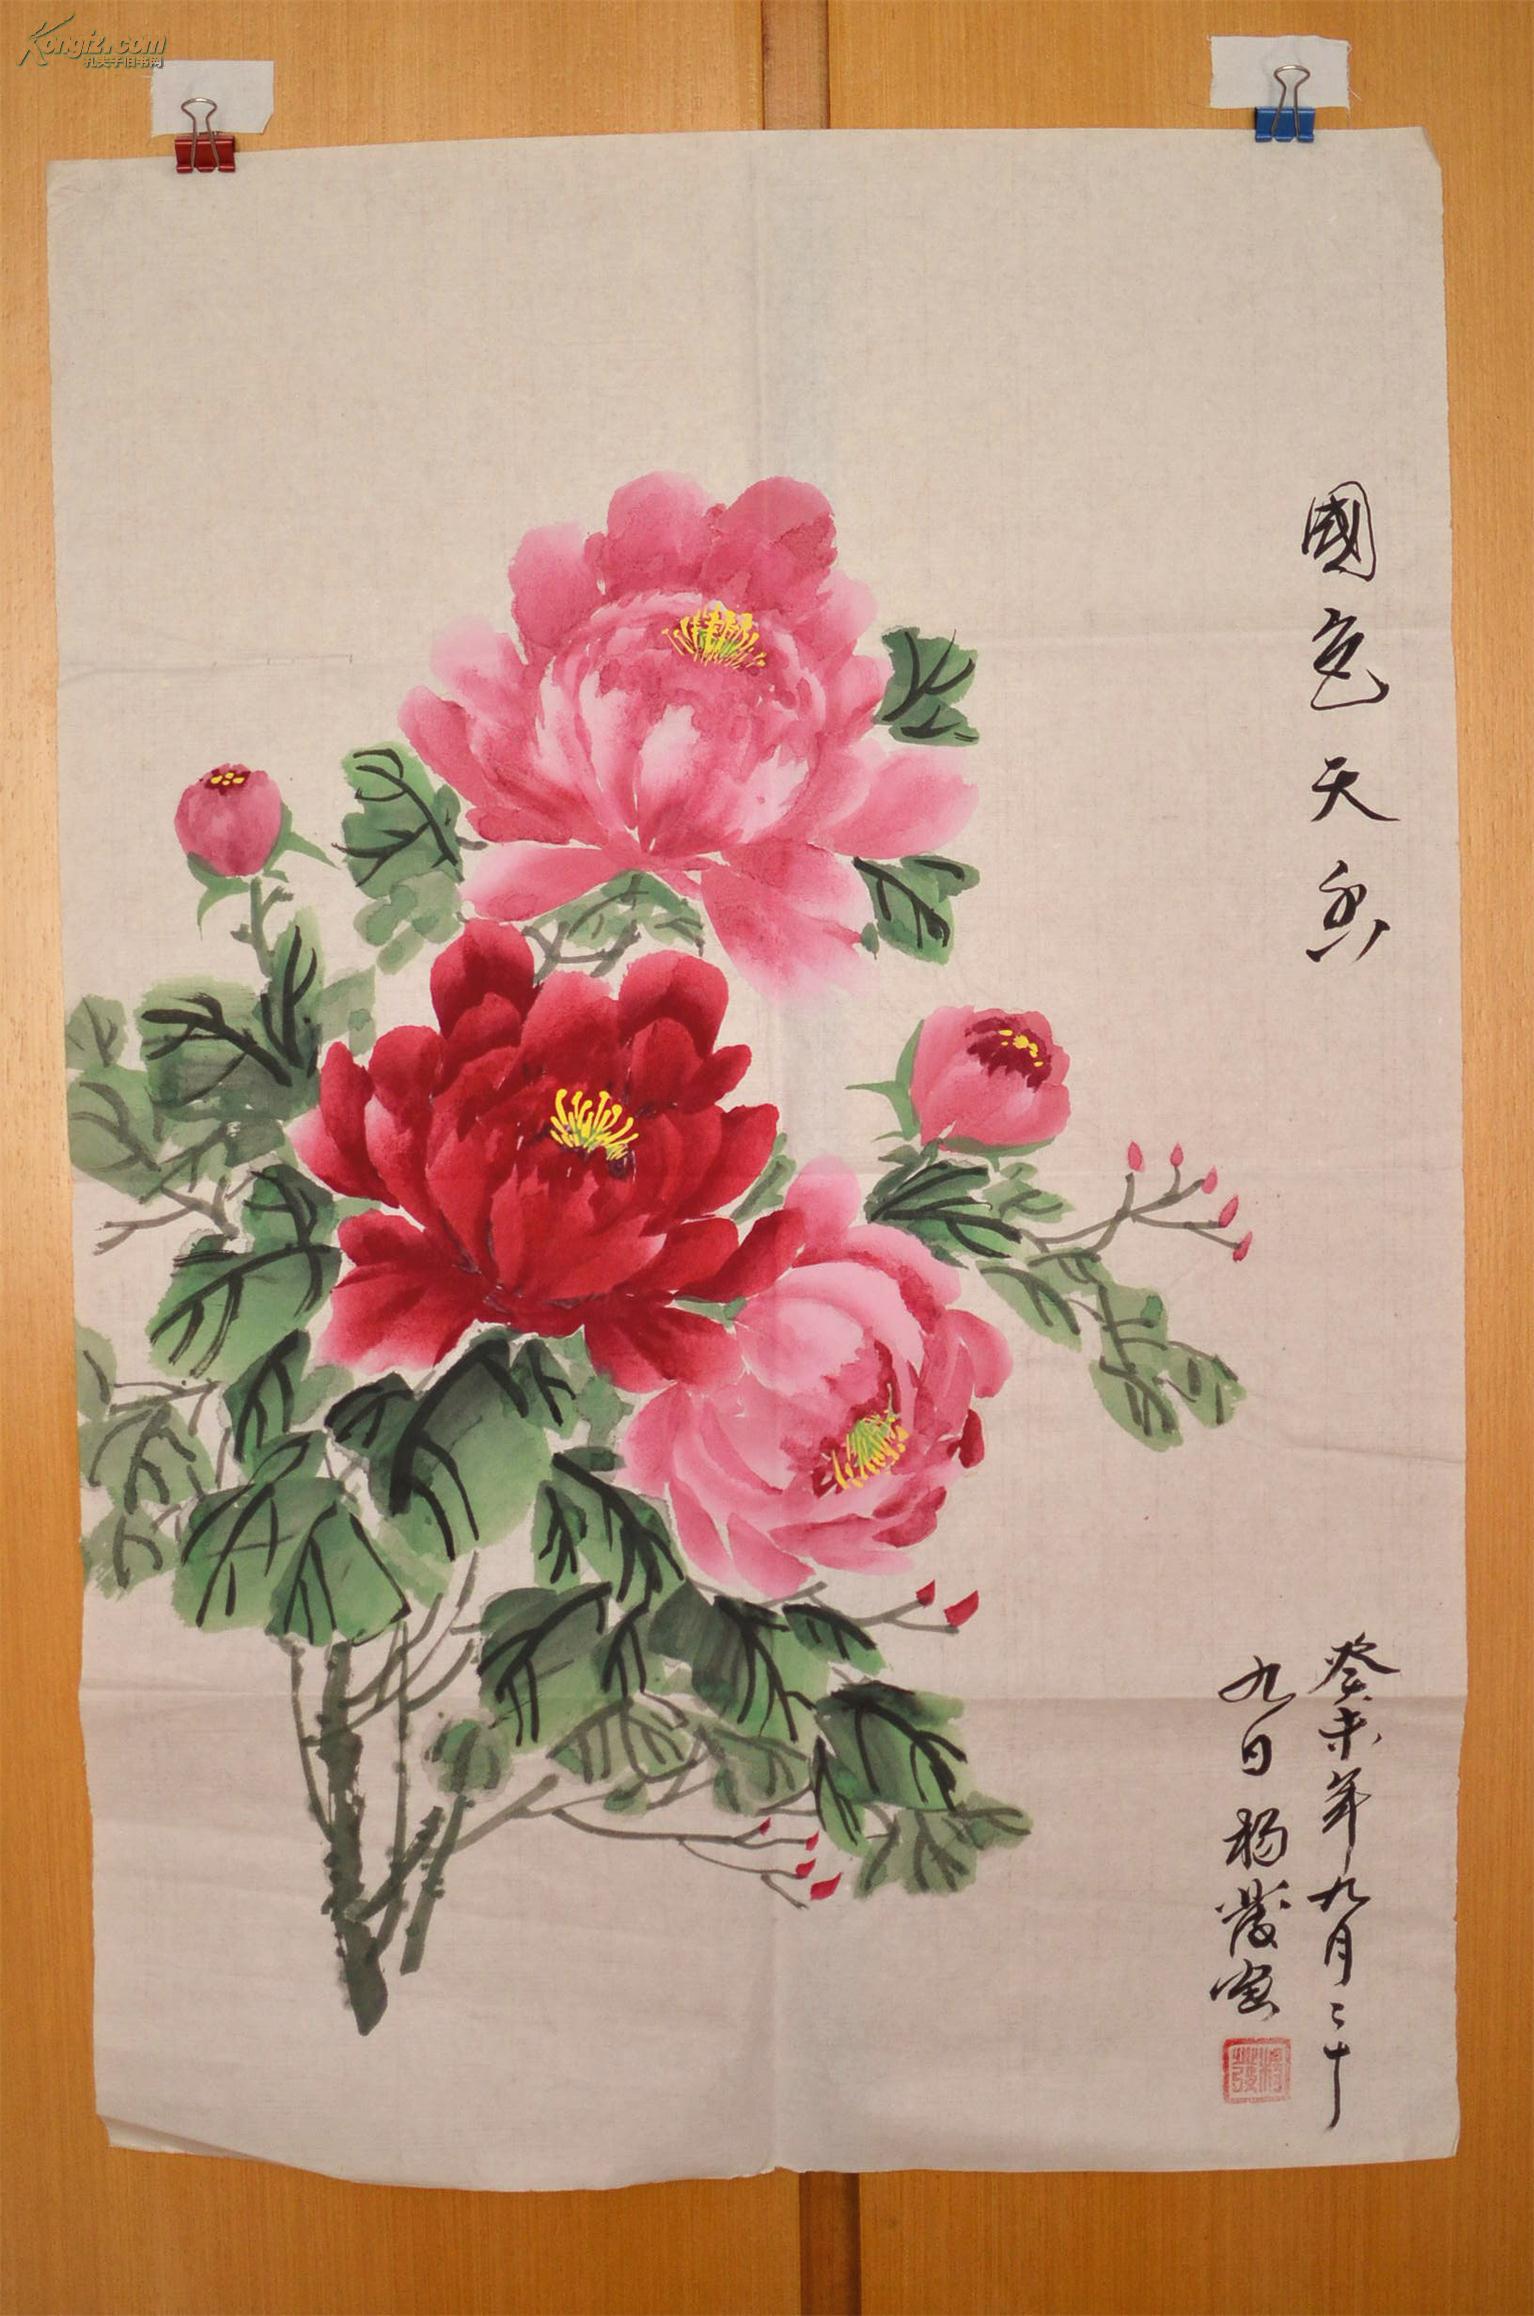 Kongfz.com
孔夫子旧书网
國色天香
癸未年九月二十
九日楊發画
楊發